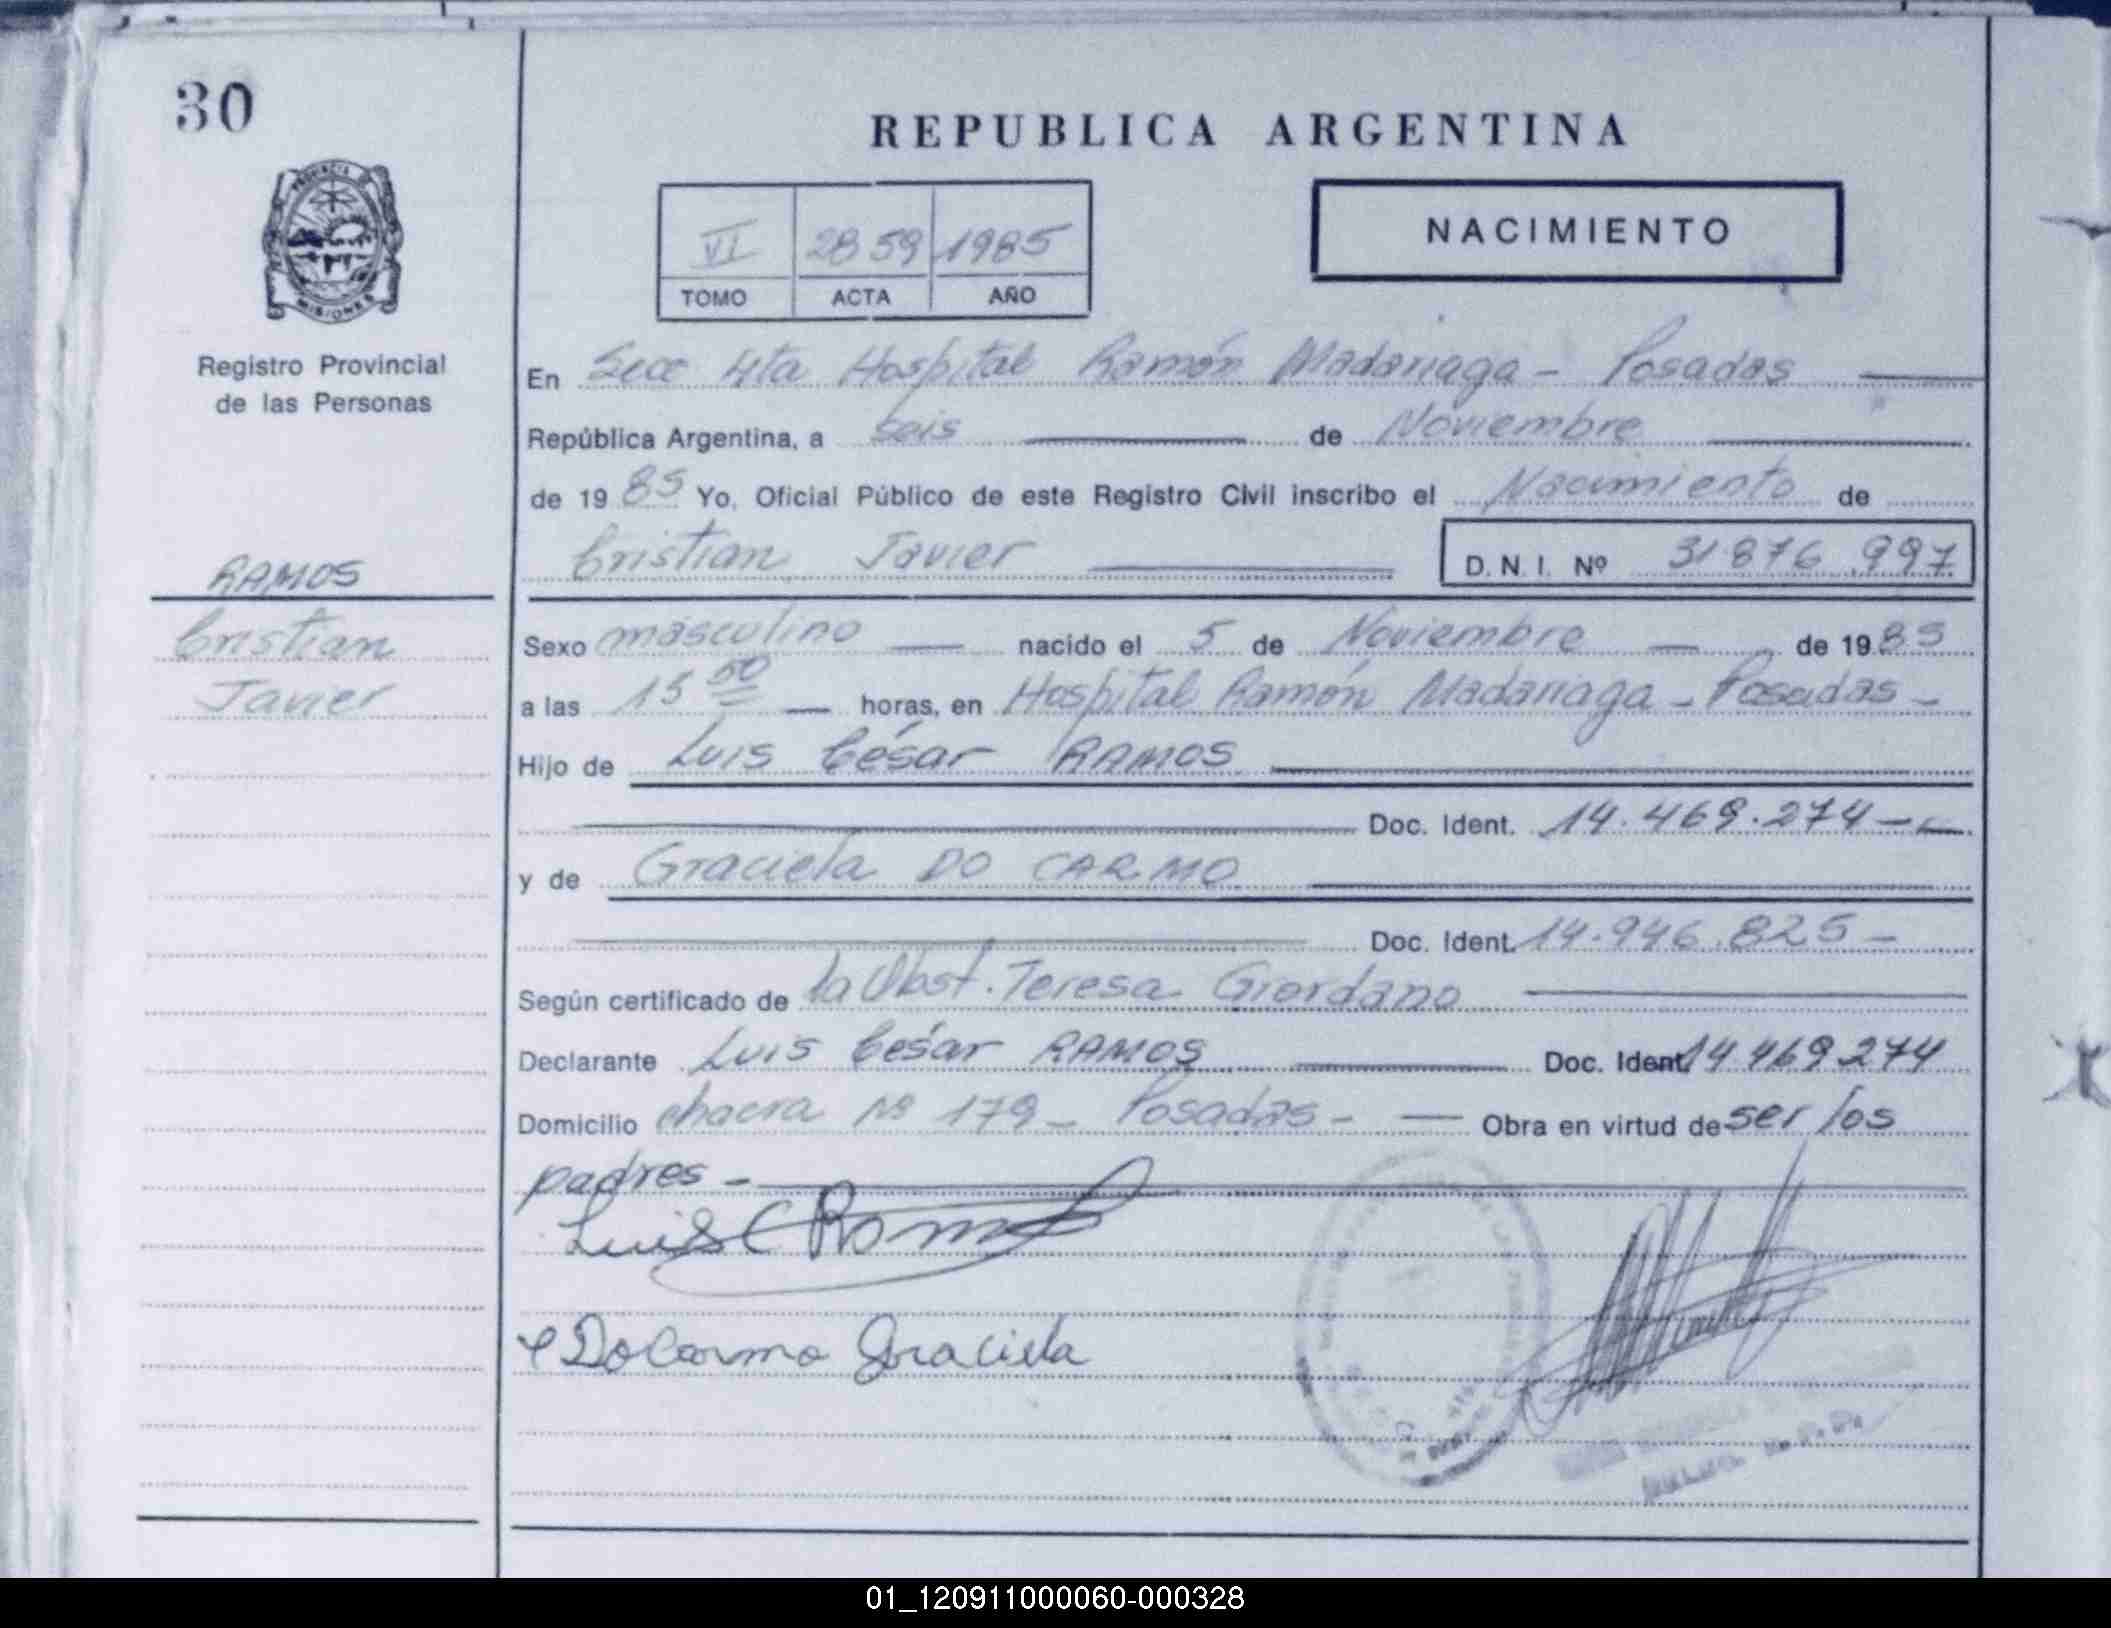 30
REPUBLICA ARGENTINA
PROVINCIA DE
MISIONES
VI 2859 1985
TOMO ACTA AÑO
NACIMIENTO
Registro Provincial
de las Personas
En Secc 4ta Hospital Ramón Madariaga - Posadas
República Argentina, a seis de Noviembre
de 1985 Yo, Oficial Público de este Registro Civil inscribo el Nacimiento de
Cristian Javier D.N.I. Nº 31876.997
RAMOS
Cristian
Javier
Sexo masculino — nacido el 5 de Noviembre — de 1985
a las 15 50 — horas, en Hospital Ramón Madariaga - Posadas -
Hijo de Luis César RAMOS
Doc. Ident. 14.469.274 -
y de Graciela DO CARMO
Doc. Ident. 14.946.825 -
Según certificado de la Obst. Teresa Giordano
Declarante Luis César RAMOS Doc. Ident. 14469274
Domicilio chacra Nº 179 - Posadas - — Obra en virtud de ser los
padres -
Luis C Ramos
Do Carmo Graciela
01_120911000060-000328